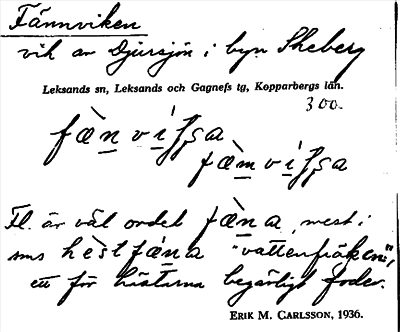 Fännviken
vik av Djursjön i byn Skeberg
Leksands sn, Leksands och Gagnefs tg, Kopparbergs län.
300.
Fl. är väl ordet fæ̀na, mest i
sms hèstfæ̀na "vattenfräken",
ett för hästarna begärligt foder.
ERIK M. CARLSSON, 1936.